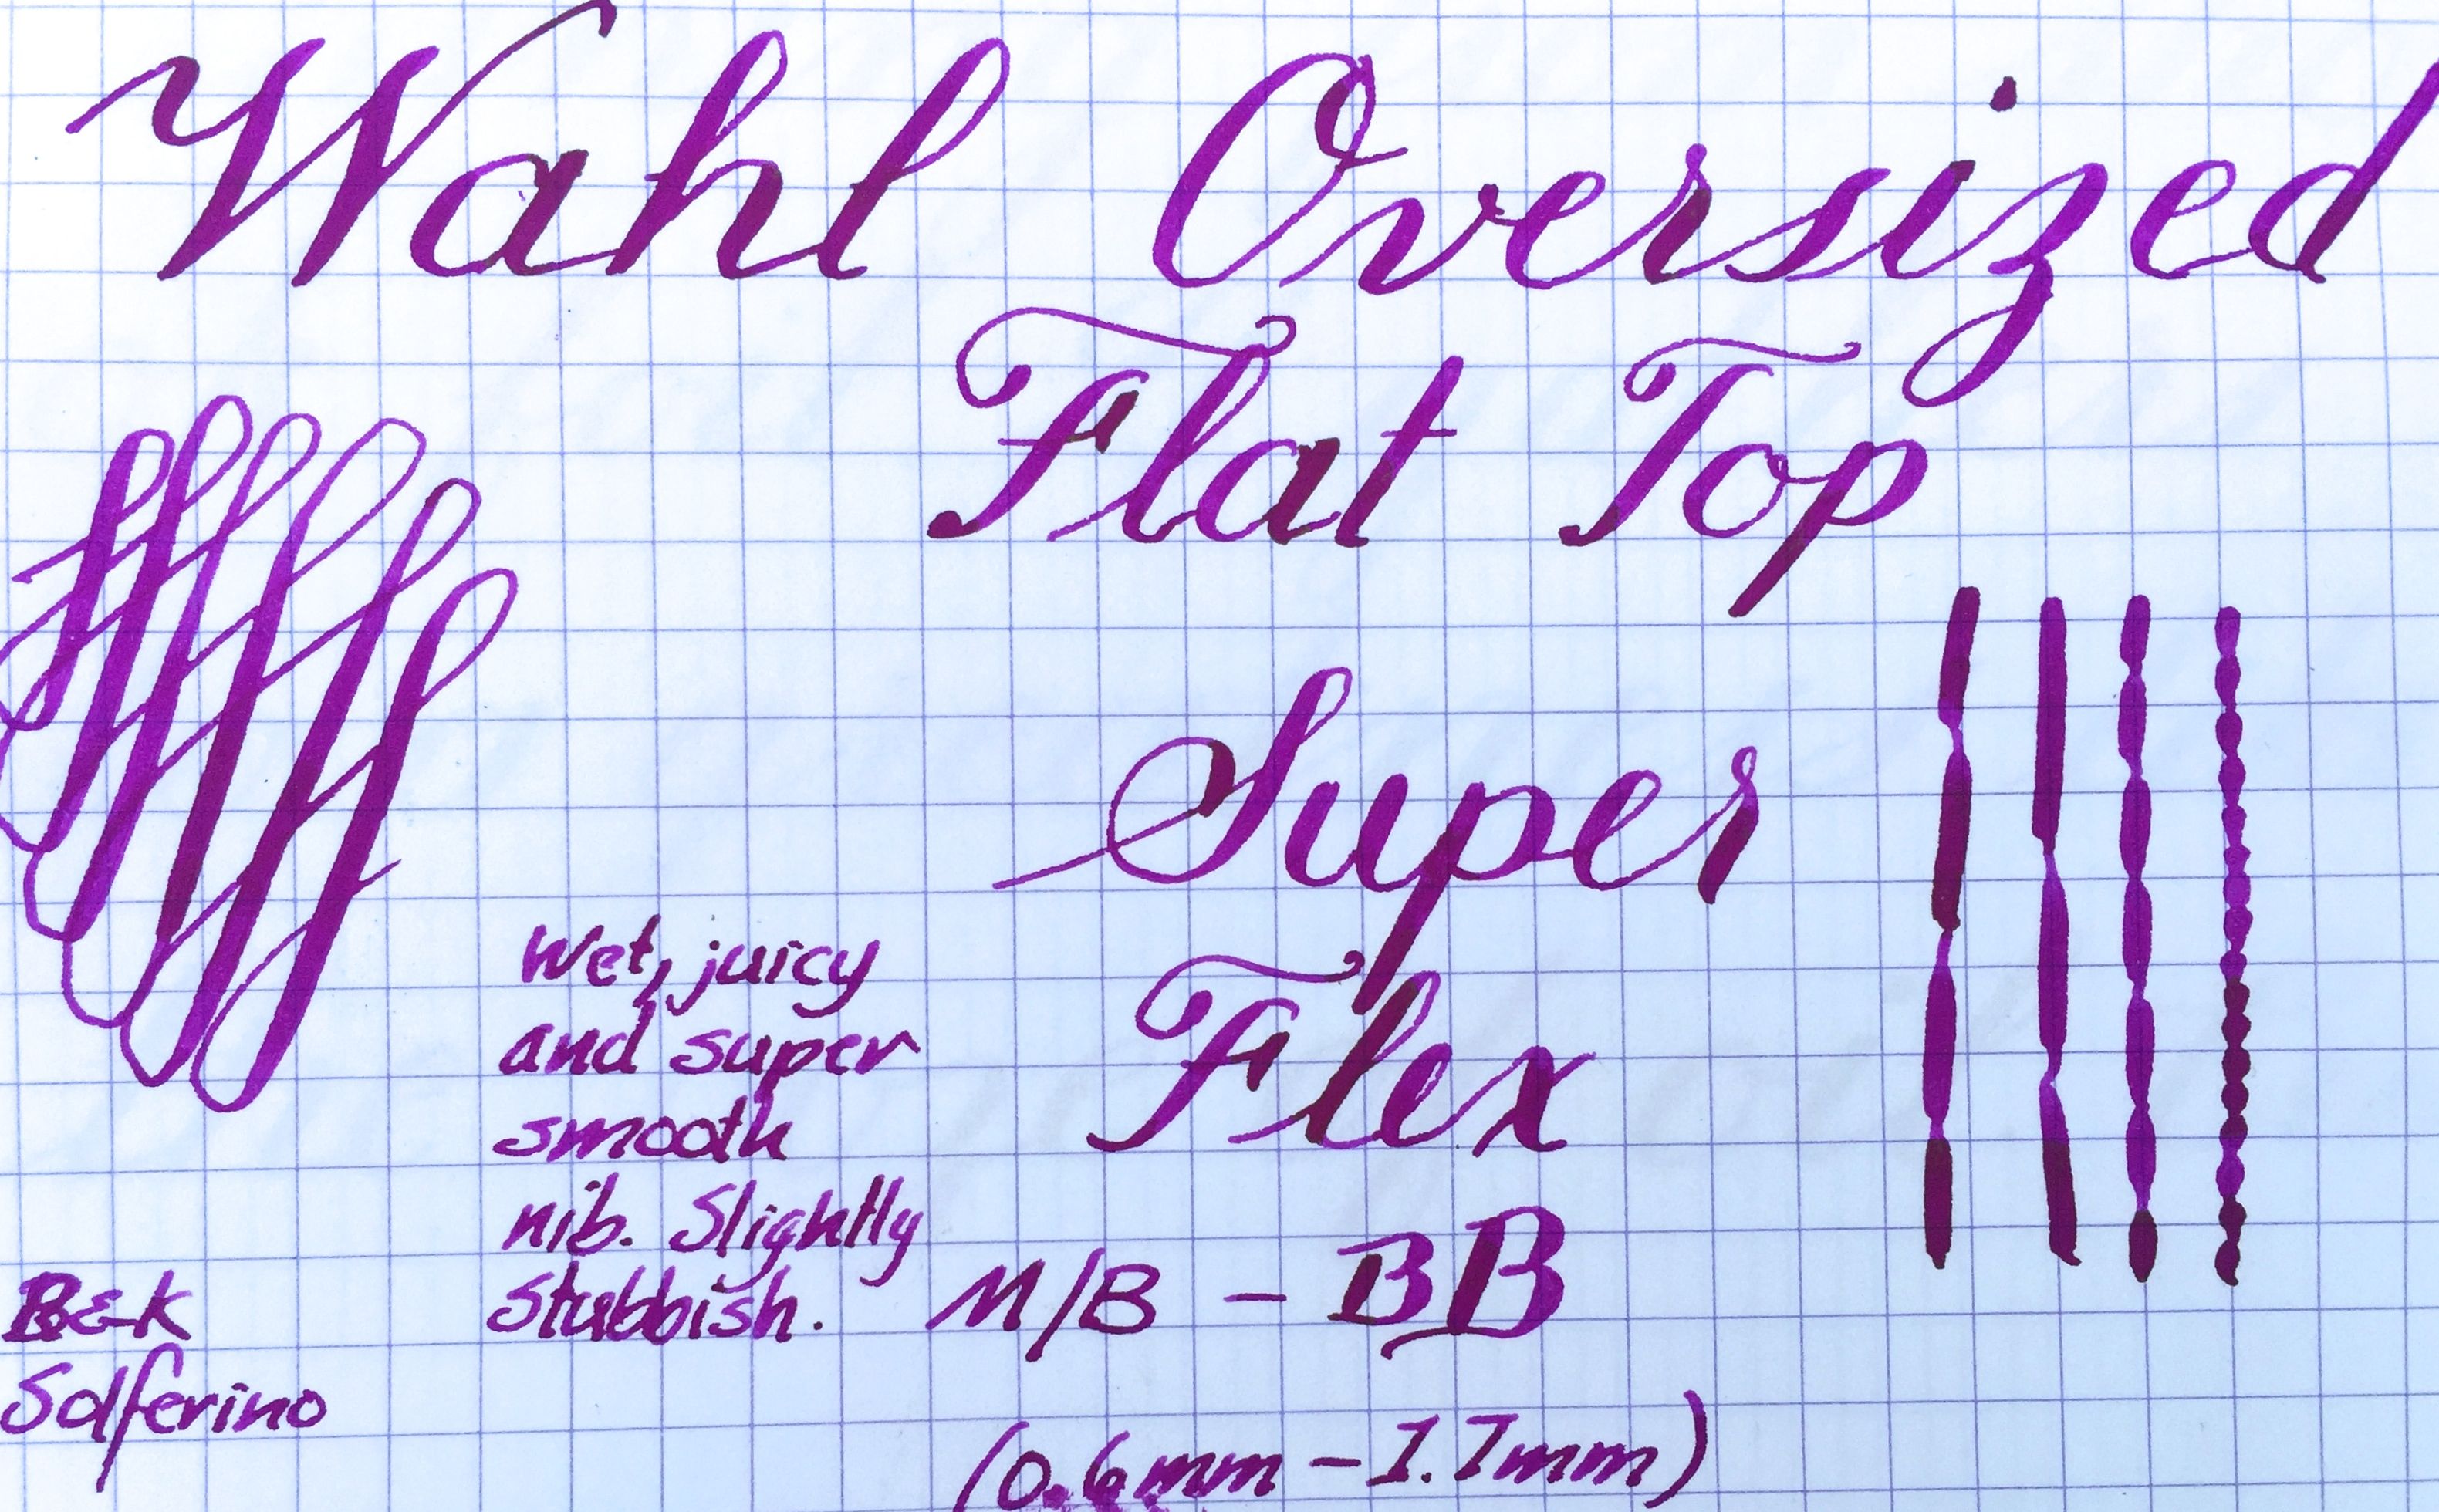 Wahl Oversized
Flat Top
Super
Flex
Wet, juicy
and super
smooth
nib. Slightly
stubbish.
M/B - BBB
(0.6mm - 1.7mm)
B&K
Solferino